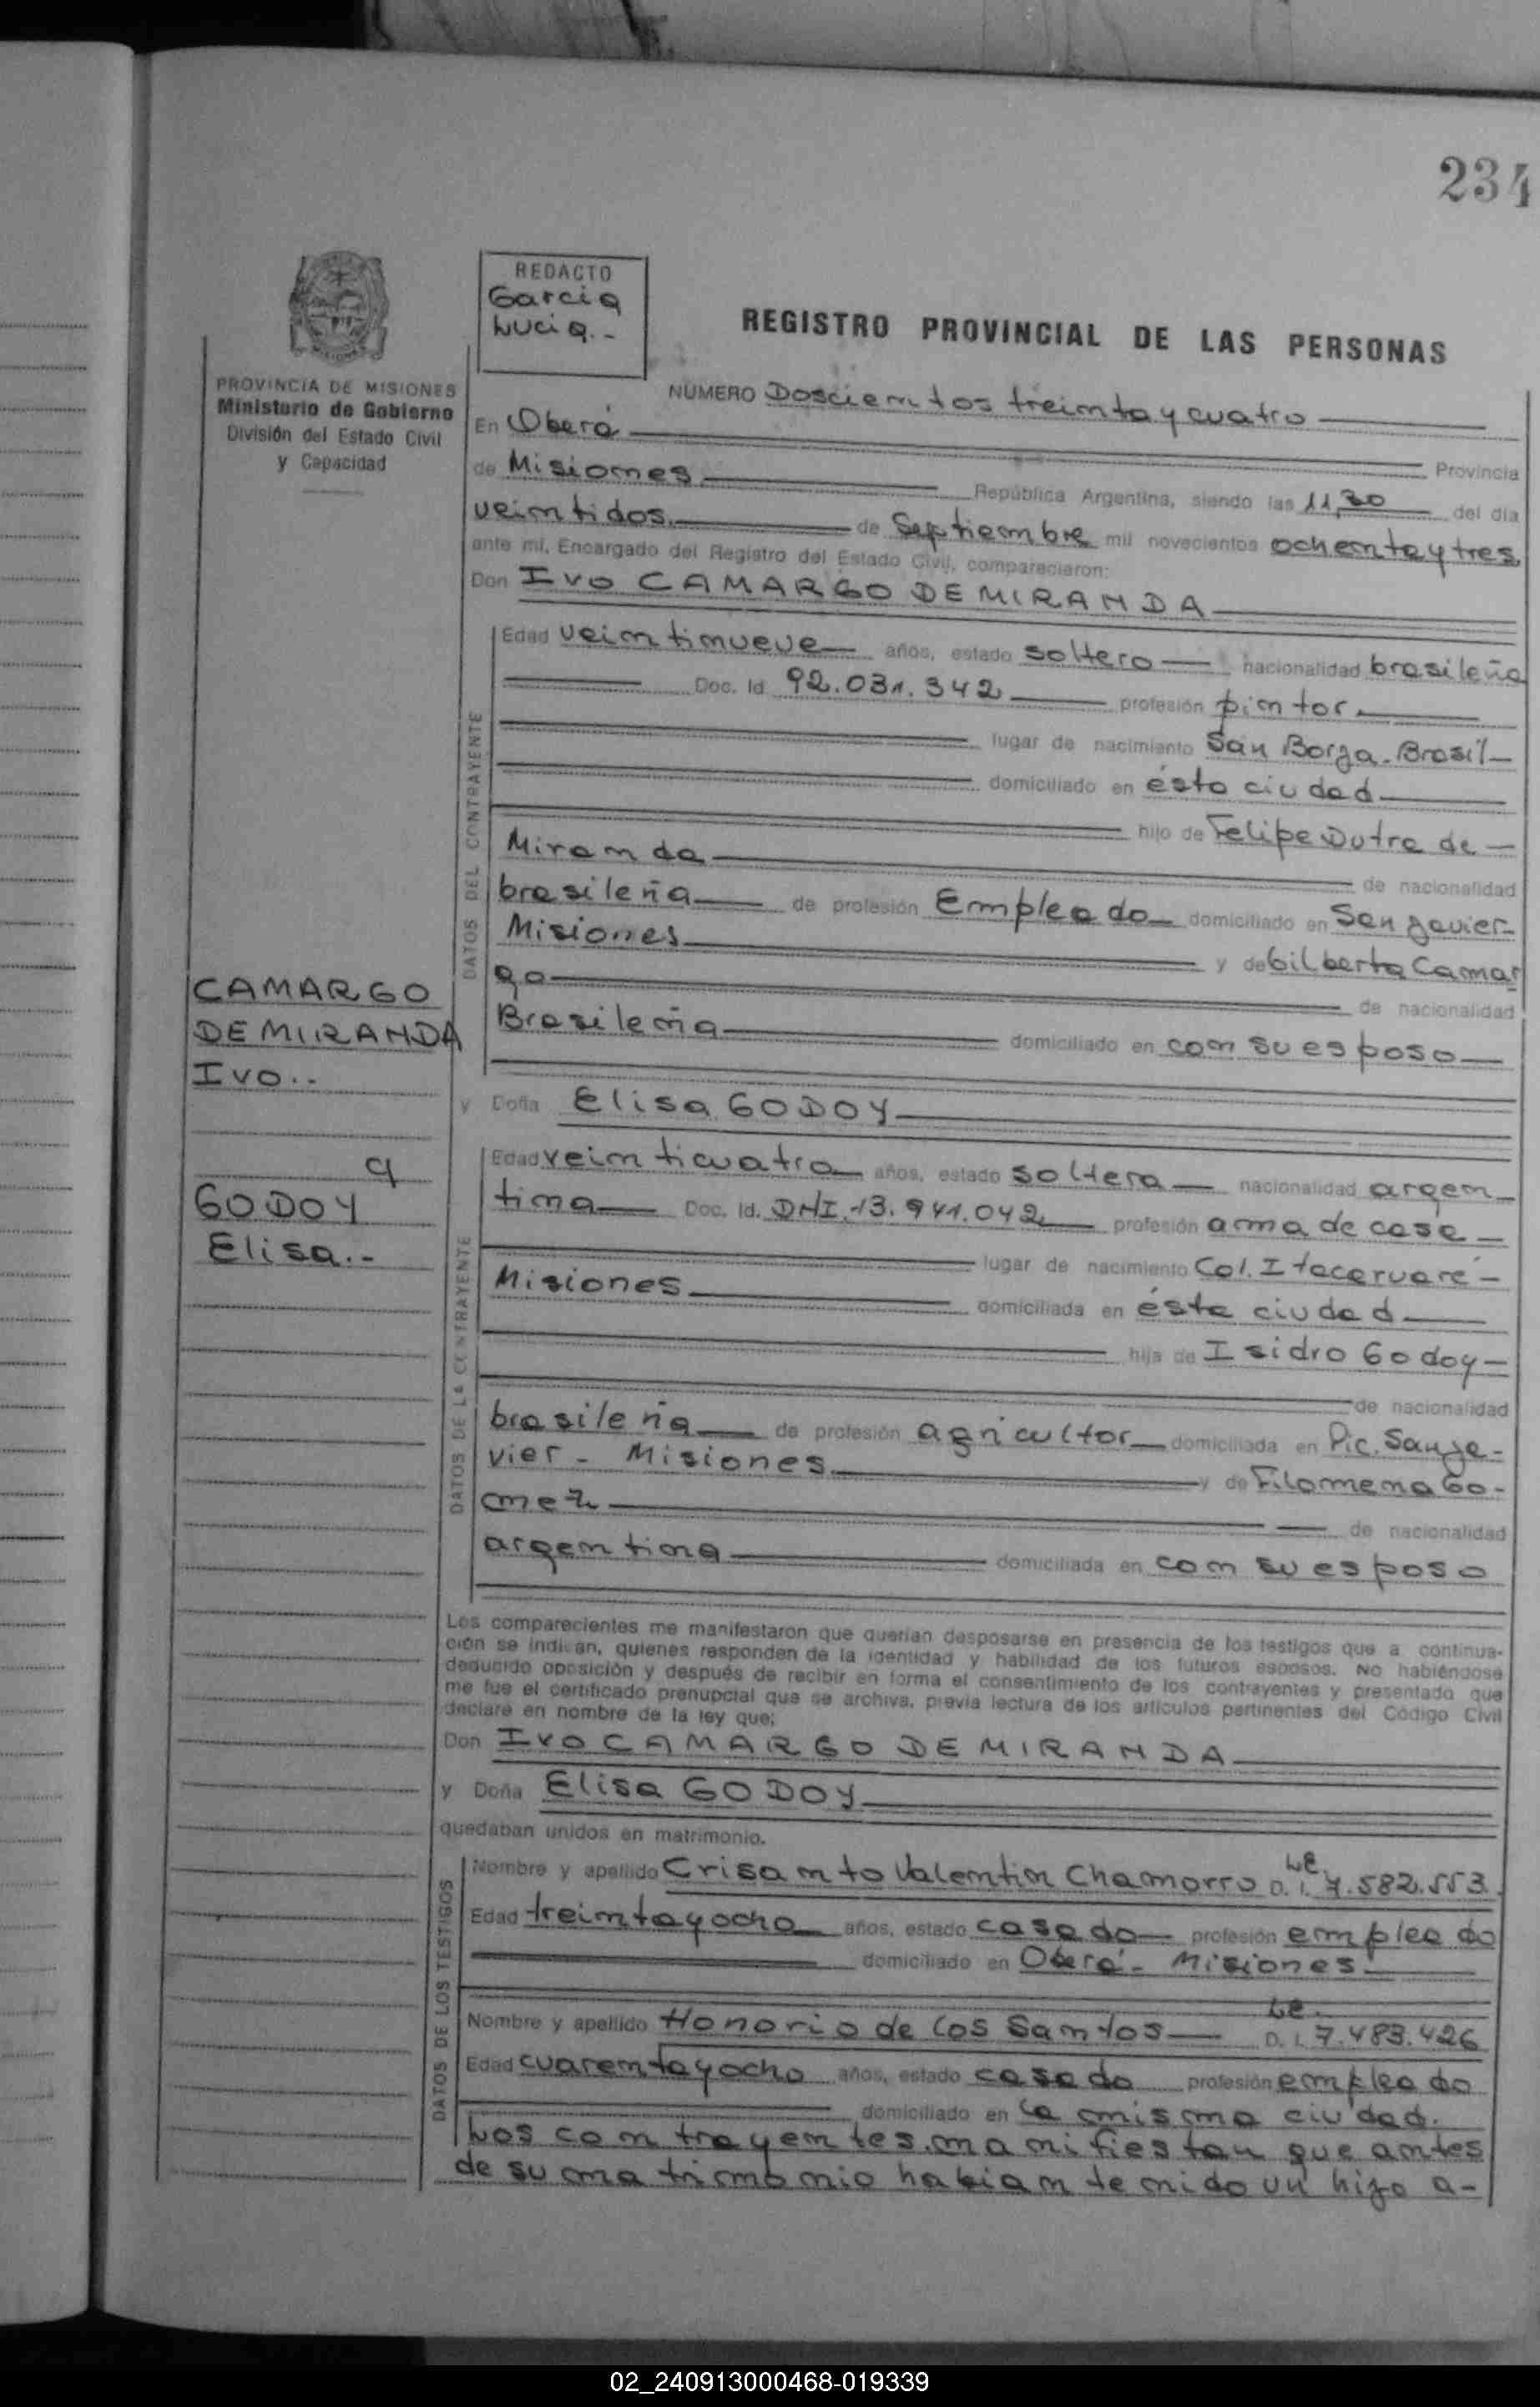 234
REDACTO
Garcia
Lucia.-
REGISTRO PROVINCIAL DE LAS PERSONAS
PROVINCIA DE MISIONES
Ministerio de Gobierno
División del Estado Civil
y Capacidad
NUMERO Doscientos treinta y cuatro
En Oberá Provincia
de Misiones República Argentina, siendo las 11,30 del día
veintidos de Septiembre mil novecientos ochenta y tres
ante mí, Encargado del Registro del Estado Civil, comparecieron:
Don Ivo CAMARGO DE MIRANDA
DATOS DEL CONTRAYENTE
Edad veintinueve años, estado soltero nacionalidad brasileña
Doc. Id. 92.031.342 profesión pintor.
lugar de nacimiento San Borja-Brasil
domiciliado en ésta ciudad
hijo de Felipe Dutra de
Miranda de nacionalidad
brasileña de profesión Empleado domiciliado en San Javier-
Misiones y de Gilberta Camar
go de nacionalidad
Brasileña domiciliado en con su esposo
CAMARGO
DE MIRANDA
Ivo.-
y Doña Elisa GODOY
q
GODOY
Elisa.-
DATOS DE LA CONTRAYENTE
Edad veinticuatro años, estado soltera nacionalidad argen-
tina Doc. Id. DNI.13.941.042 profesión ama de casa
lugar de nacimiento Col. Itacaruaré-
Misiones domiciliada en ésta ciudad
hija de Isidro Godoy
de nacionalidad
brasileña de profesión agricultor domiciliada en Pic. San Ja-
vier - Misiones y de Filomena Go-
mez de nacionalidad
argentina domiciliada en con su esposo
Los comparecientes me manifestaron que querían desposarse en presencia de los testigos que a continua-
ción se indican, quienes responden de la identidad y habilidad de los futuros esposos. No habiéndose
deducido oposición y después de recibir en forma el consentimiento de los contrayentes y presentado que
me fue el certificado prenupcial que se archiva, previa lectura de los artículos pertinentes del Código Civil
declaré en nombre de la ley que;
Don IVO CAMARGO DE MIRANDA
y Doña Elisa GODOY
quedaban unidos en matrimonio.
DATOS DE LOS TESTIGOS
Nombre y apellido Crisanto Valentin Chamorro D. I. LE 7.582.553
Edad treinta y ocho años, estado casado profesión empleado
domiciliado en Oberá- Misiones.
Nombre y apellido Honorio de los Santos D. I. LE. 7.483.426
Edad cuarenta y ocho años, estado casado profesión empleado
domiciliado en la misma ciudad.
Los contrayentes manifiestan que antes
de su matrimonio habian tenido un hijo a-
02_240913000468-019339